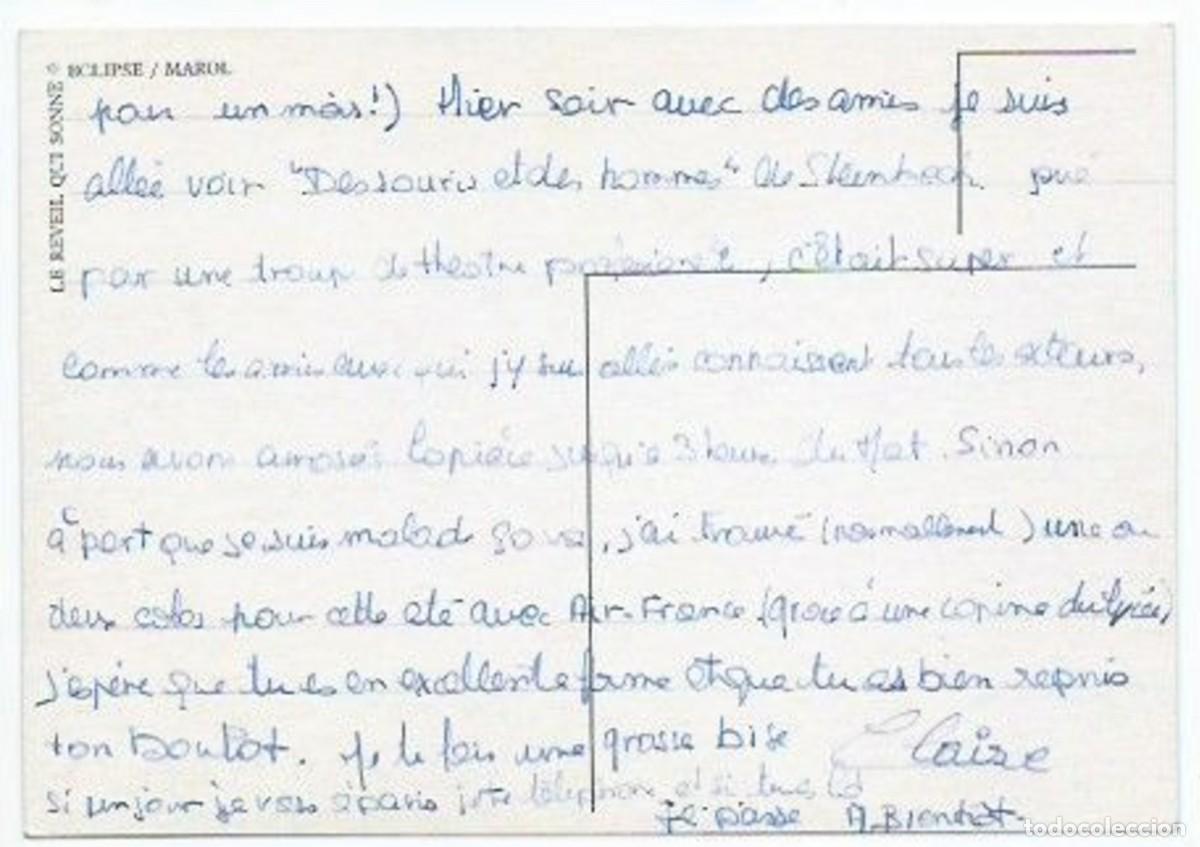 © ECLIPSE / MAROL
LE REVEIL QUI SONNE
pour un mois!) Hier soir avec des amies je suis
allée voir "Des souris et des hommes" de Steinbeck joué
par une troup de théatre , c'était super et
comme les amis avec qui j'y suis allée connaissent tous les acteurs,
nous avons arrosés jusqu'a 3 heures du Mat. Sinon
à part que je suis malad ça va, j'ai trouvé (normallement) une ou
deux colos pour cette été avec Air-France (grace à une copine du lycée)
j'epère que tu es en excellente forme et que tu as bien repris
ton boulot. Je te fais une grosse bise Claire
si un jour je vais à paris je te téléphone et si tu es là
je passe A Bientot.
todocoleccion